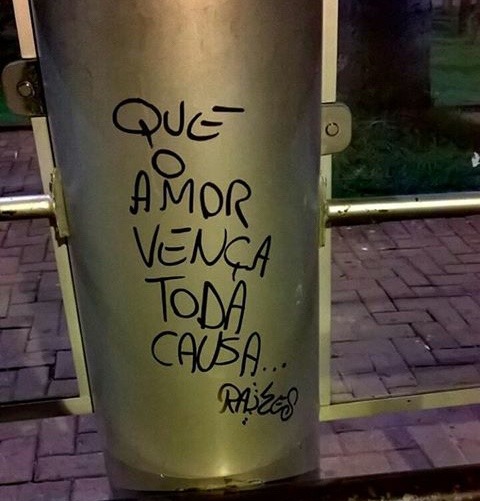 QUE
O
AMOR
VENÇA
TODA
CAUSA...
RAÍZES